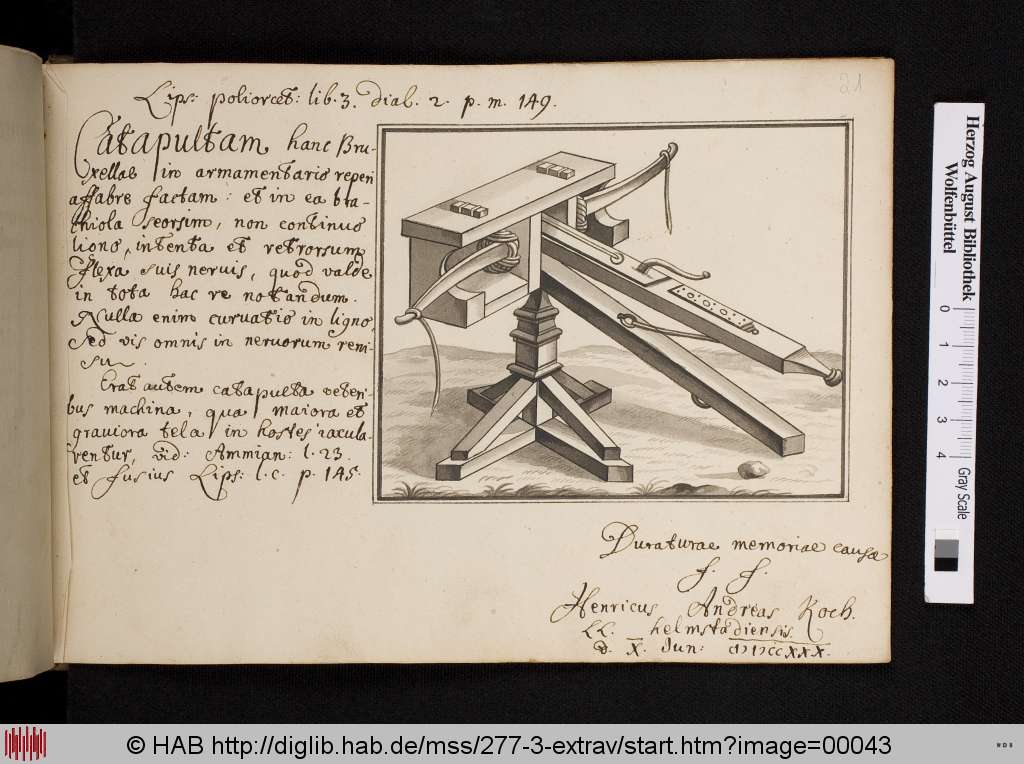 Lips: poliorcet: lib. 3. dial. 2. p. m. 149.
21
Catapultam hanc Bru-
xellae in armamentario reperi
affabre factam: et in ea bra-
chiola seorsim, non continuo
ligno, intenta et retrorsum
flexa suis nervis, quod valde
in tota hac re notandum.
Nulla enim curvatio in ligno,
sed vis omnis in nervorum reni-
su.
Erat autem catapulta veteri-
bus machina, qua maiora et
graviora tela in hostes iacula-
rentur, vid: Ammian: l. 23.
et fusius Lips: l. c. p. 145.
Duraturae memoriae causa
f. f.
Henricus Andreas Koch.
LL. helmstadiensis.
d. X. Jun:
Herzog August Bibliothek
Wolfenbüttel
0 1 2 3 4
Gray Scale
© HAB http://diglib.hab.de/mss/277-3-extrav/start.htm?image=00043